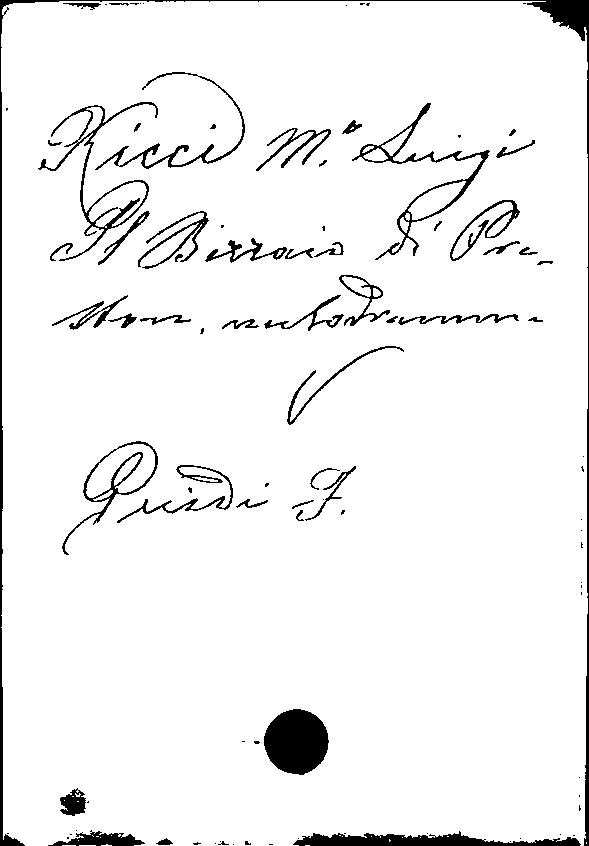 Ricci M.º Luigi
Il Birraio di Pre-
ston. melodramma
Guidi F.